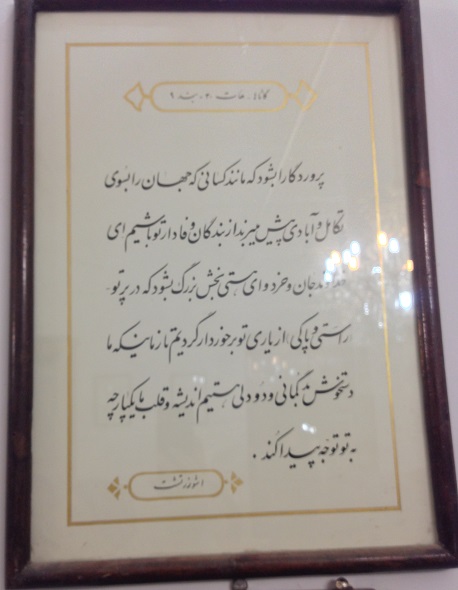 گاتاها . هات ۳۰ . بند ۹
پروردگارا بشود که مانند کسانی که جهان را بسوی
تکامل و آبادی پیش میبرند از بندگان وفادار تو باشیم ای
خداوند جان و خرد و ای هستی بخش بزرگ بشود که در پرتو
راستی و پاکی از یاری تو برخوردار گردیم تا زمانیکه ما
دستخوش بدگمانی و دودلی هستیم اندیشه و قلب ما یکپارچه
به تو توجه پیدا کند .
اشو زرتشت